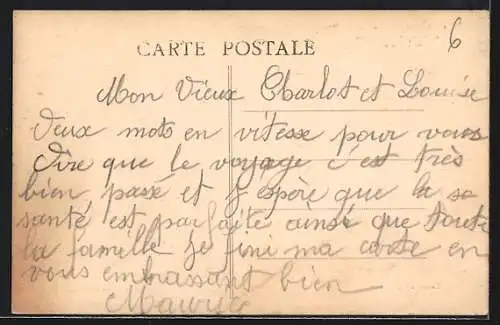 6
CARTE POSTALE
Mon Vieux Charlot et Louise
Deux mots en vitesse pour vous
Dire que le voyage c'est très
bien passé et j'espère que la sa
santé est parfaite ainsi que toute
la famille je fini ma carte en
vous embrassant bien
Maurice